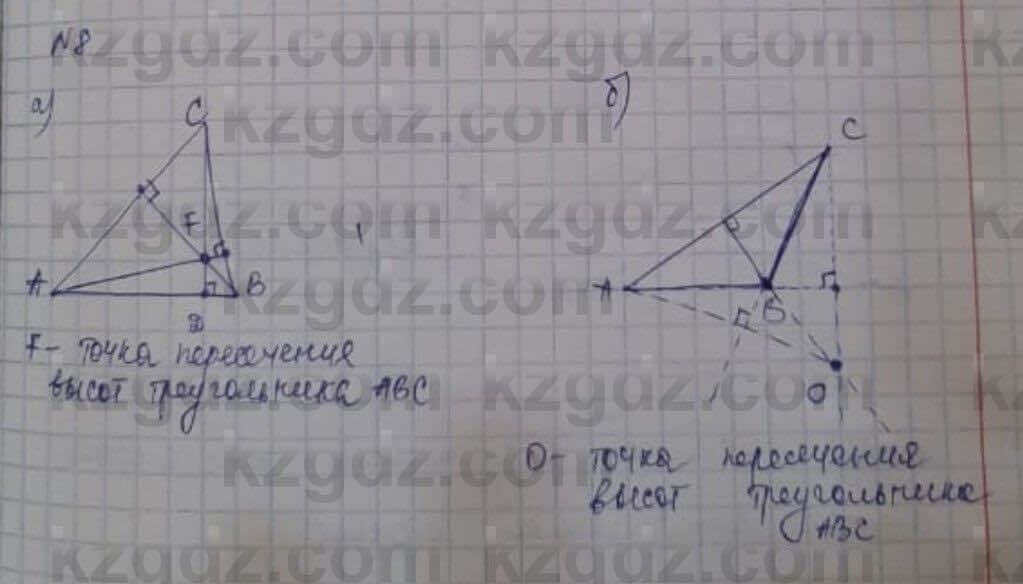 N8
а)
C
F
A
B
D
F- точка пересечения
высот треугольника ABC
б)
C
A
B
O
O- точка пересечения
высот треугольника
ABC
kzgdz.com